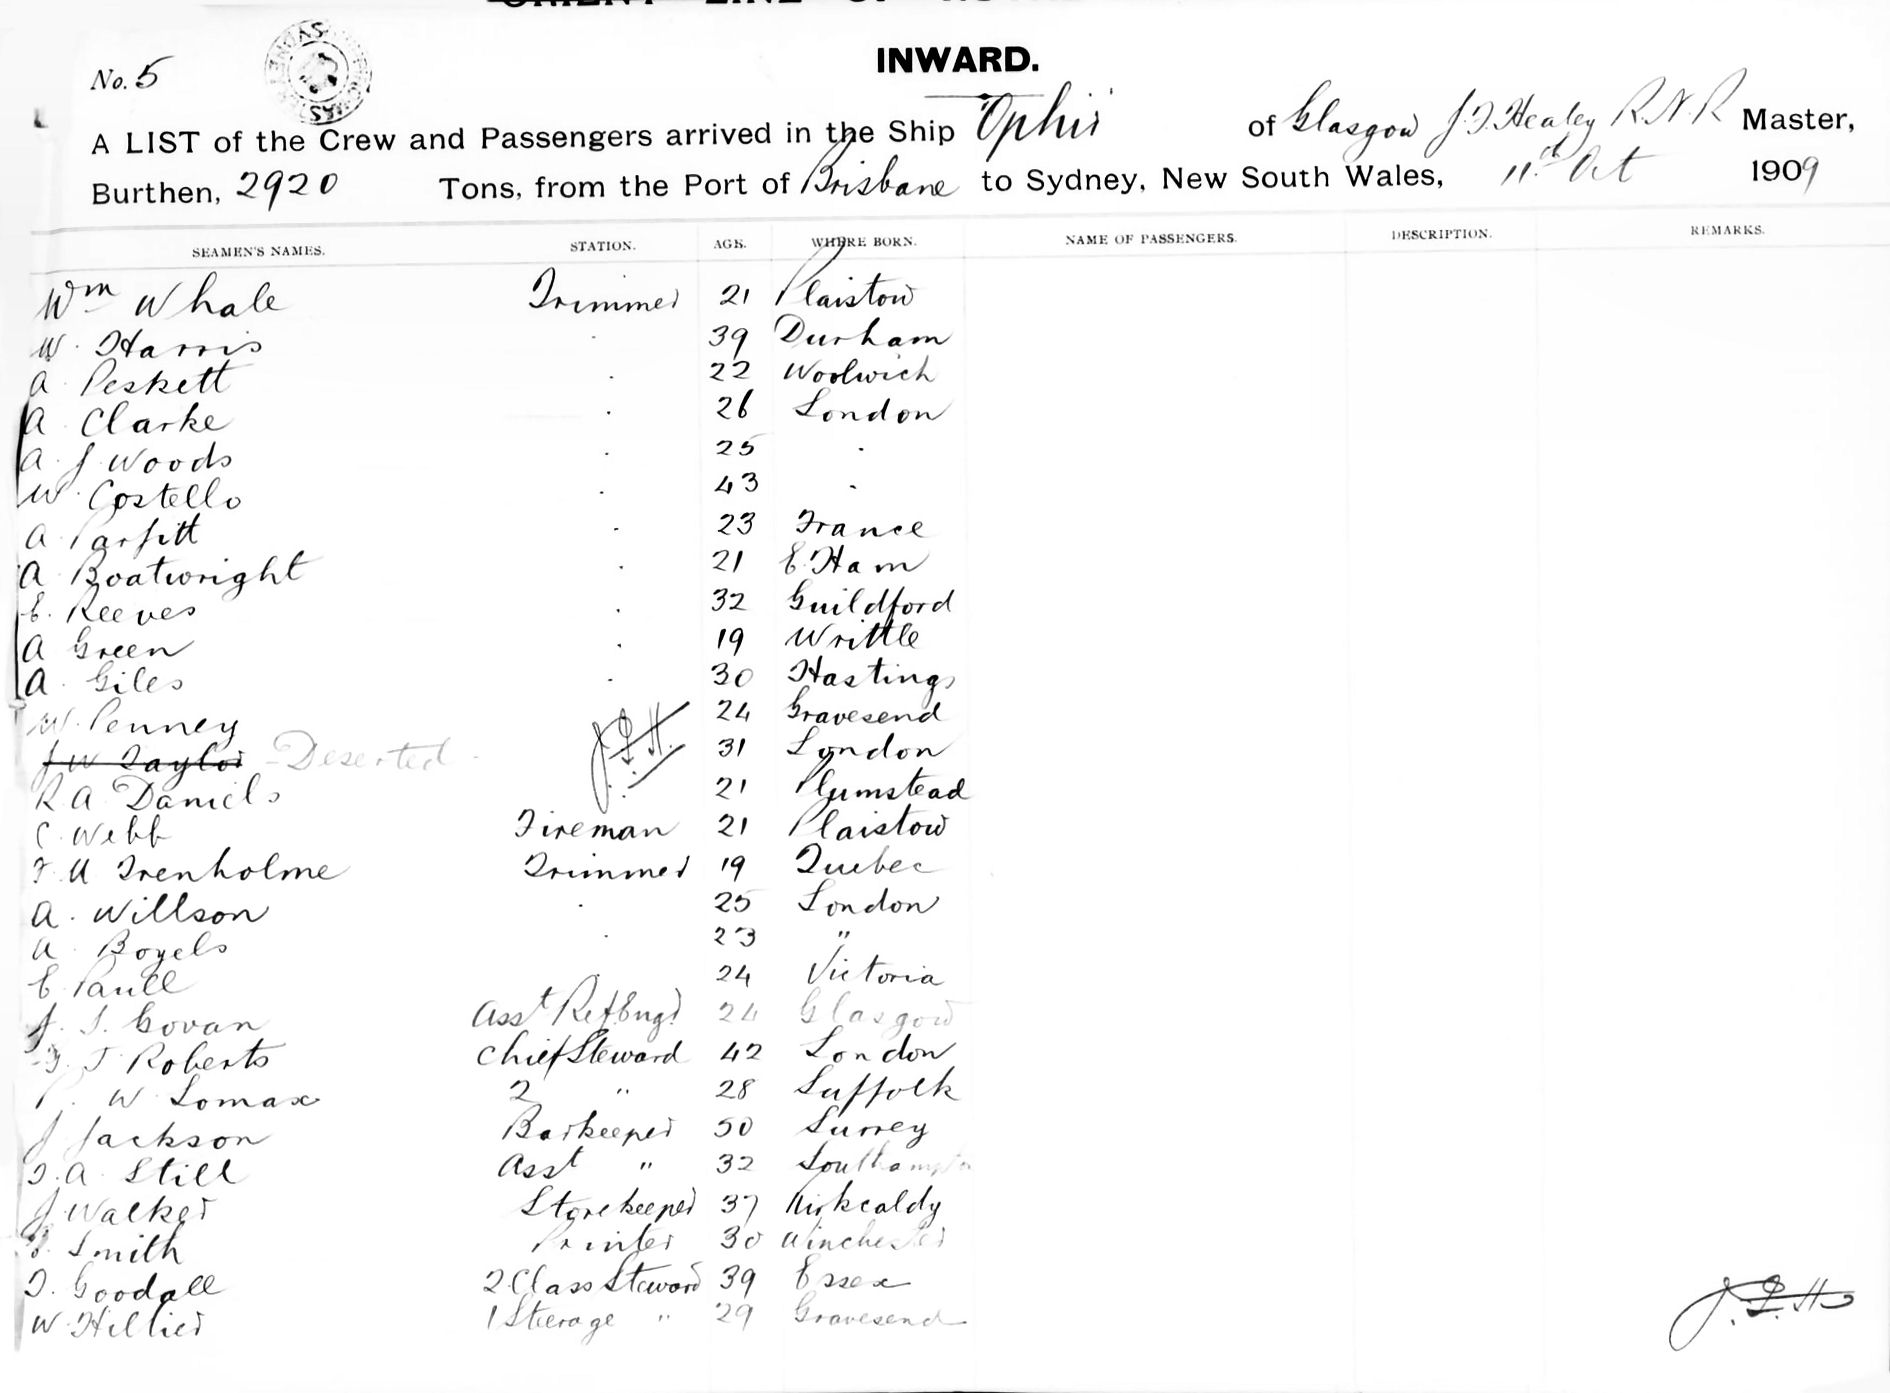 No. 5
INWARD.
A LIST of the Crew and Passengers arrived in the Ship "Ophir" of Glasgow J. F. Healey R.N.R Master,
Burthen, 2920 Tons, from the Port of Brisbane to Sydney, New South Wales, 11th Oct 1909
SEAMEN'S NAMES. STATION. AGE. WHERE BORN. NAME OF PASSENGERS. DESCRIPTION. REMARKS.
Wm Whale Trimmer 21 Plaistow
W. Harris . 39 Durham
A. Peskett . 22 Woolwich
A. Clarke . 26 London
A. J. Woods . 25 .
W. Costello . 43 .
A. Parfitt . 23 France
A. Boatwright . 21 E. Ham
E. Reeves . 32 Guildford
A Green . 19 Writtle
A. Giles . 30 Hastings
W. Penney 24 Gravesend
J W Taylor - Deserted - 31 London
R. A. Daniels 21 Plumstead
C. Webb Fireman 21 Plaistow
Trenholme Trimmer 19 Quebec
A. Willson . 25 London
A. Boyels . 23 "
E Paull 24 Victoria
J. S. Govan Asst Ref Engr 24 Glasgow
T Roberts Chief Steward 42 London
P. W. Lomax 2 " 28 Suffolk
J Jackson Barkeeper 50 Surrey
A. Still Asst " 32 Southampton
J Walker Storekeeper 37 Kirkcaldy
Smith Printer 30 Winchester
T. Goodall 2 Class Steward 39 Essex
W. Hillier 1 Steerage " 29 Gravesend
J. F. H.